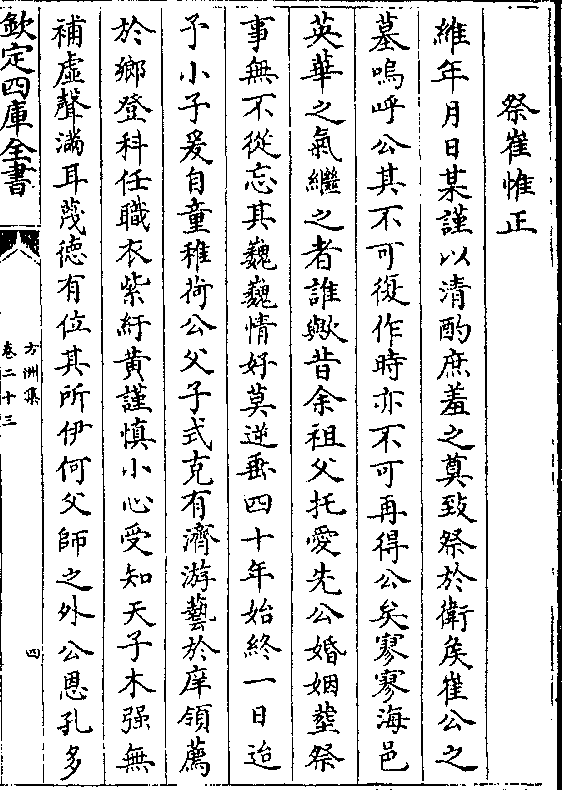 祭崔惟正
維年月日某謹以清酌庶羞之奠致祭於衛矦崔公之
墓嗚呼公其不可復作時亦不可再得公矣寥寥海邑
英華之氣繼之者誰歟昔余祖父托愛先公婚姻塟祭
事無不從忘其巍巍情好莫逆垂四十年始終一日迨
予小子爰自童稚荷公父子式克有濟游藝於庠領薦
於鄉登科任職衣紫紆黄謹慎小心受知天子木强無
補虛聲滿耳蔑德有位其所伊何父師之外公恩孔多
欽定四庫全書
方洲集
卷二十三
四